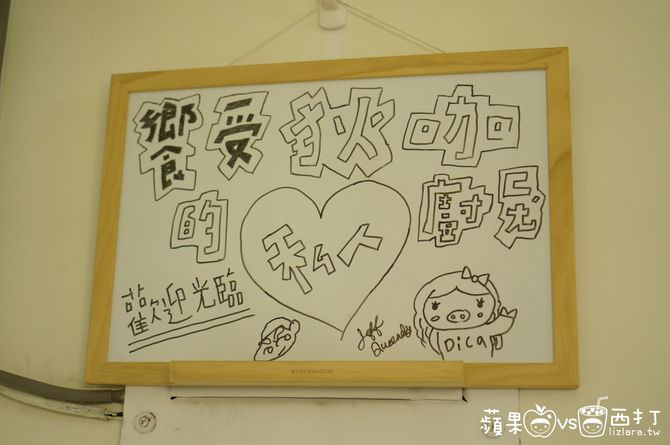 饗受狄咖
的私人廚房
歡迎光臨
Jeff
Dica
WORKINGHOUSE
蘋果vs西打
lizlara.tw